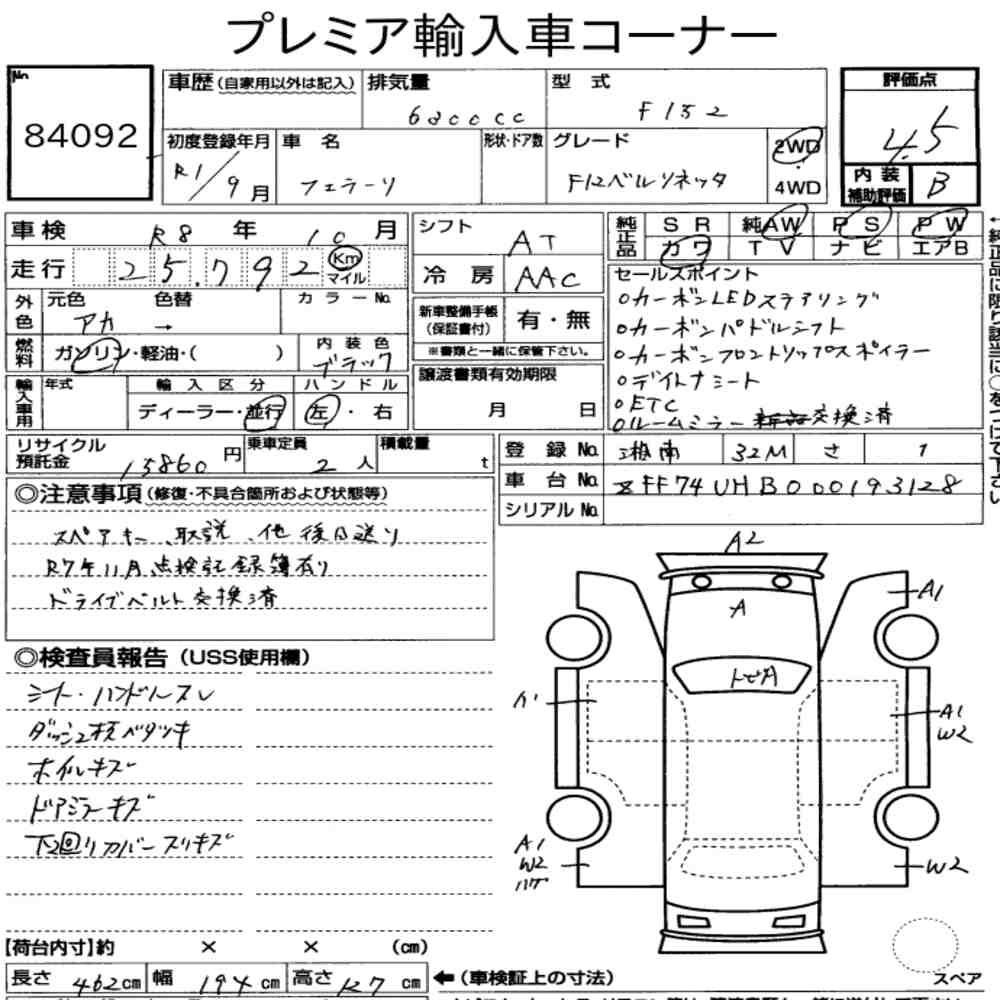 プレミア輸入車コーナー
No. 84092
車歴 (自家用以外は記入) 排気量 6300cc 型式 F152 評価点 4.5
初度登録年月 R1/9月 車名 フェラーリ 形状・ドア数 グレード F12ベルリネッタ 2WD 4WD
内装補助評価 B
車検 R8年 10月 シフト AT
走行 25,792 Km マイル 冷房 AAC
純正品 SR 純AW PS PW
カワ TV ナビ エアB
外色 元色 アカ 色替 → カラーNo.
燃料 ガソリン・軽油・( ) 内装色 ブラック
新車整備手帳(保証書付) 有・無
※書類と一緒に保管下さい。
セールスポイント
○カーボンLEDステアリング
○カーボンパドルシフト
○カーボンフロントリップスポイラー
○デイトナシート
○ETC
○ルームミラー 交換済
輸入車用 年式 輸入区分 ディーラー・並行 ハンドル 左・右
譲渡書類有効期限 月 日
リサイクル預託金 15860円 乗車定員 2人 積載量 t
登録No. 湘南 32M さ 1
車台No. ZFF74UHB000193128
シリアルNo.
◎注意事項(修復・不具合箇所および状態等)
スペアキー、取説、他 後日送り
R7年11月点検記録簿有り
ドライブベルト交換済
◎検査員報告(USS使用欄)
シート・ハンドルスレ
ダッシュ枠ベタツキ
ホイルキズ
ドアミラーキズ
下回りカバースリキズ
A2
A
A1
トビA
A1
W2
A1
W2
ハゲ
W2
【荷台内寸】約 × × (cm)
長さ 462cm 幅 194cm 高さ 127cm ←(車検証上の寸法)
スペア